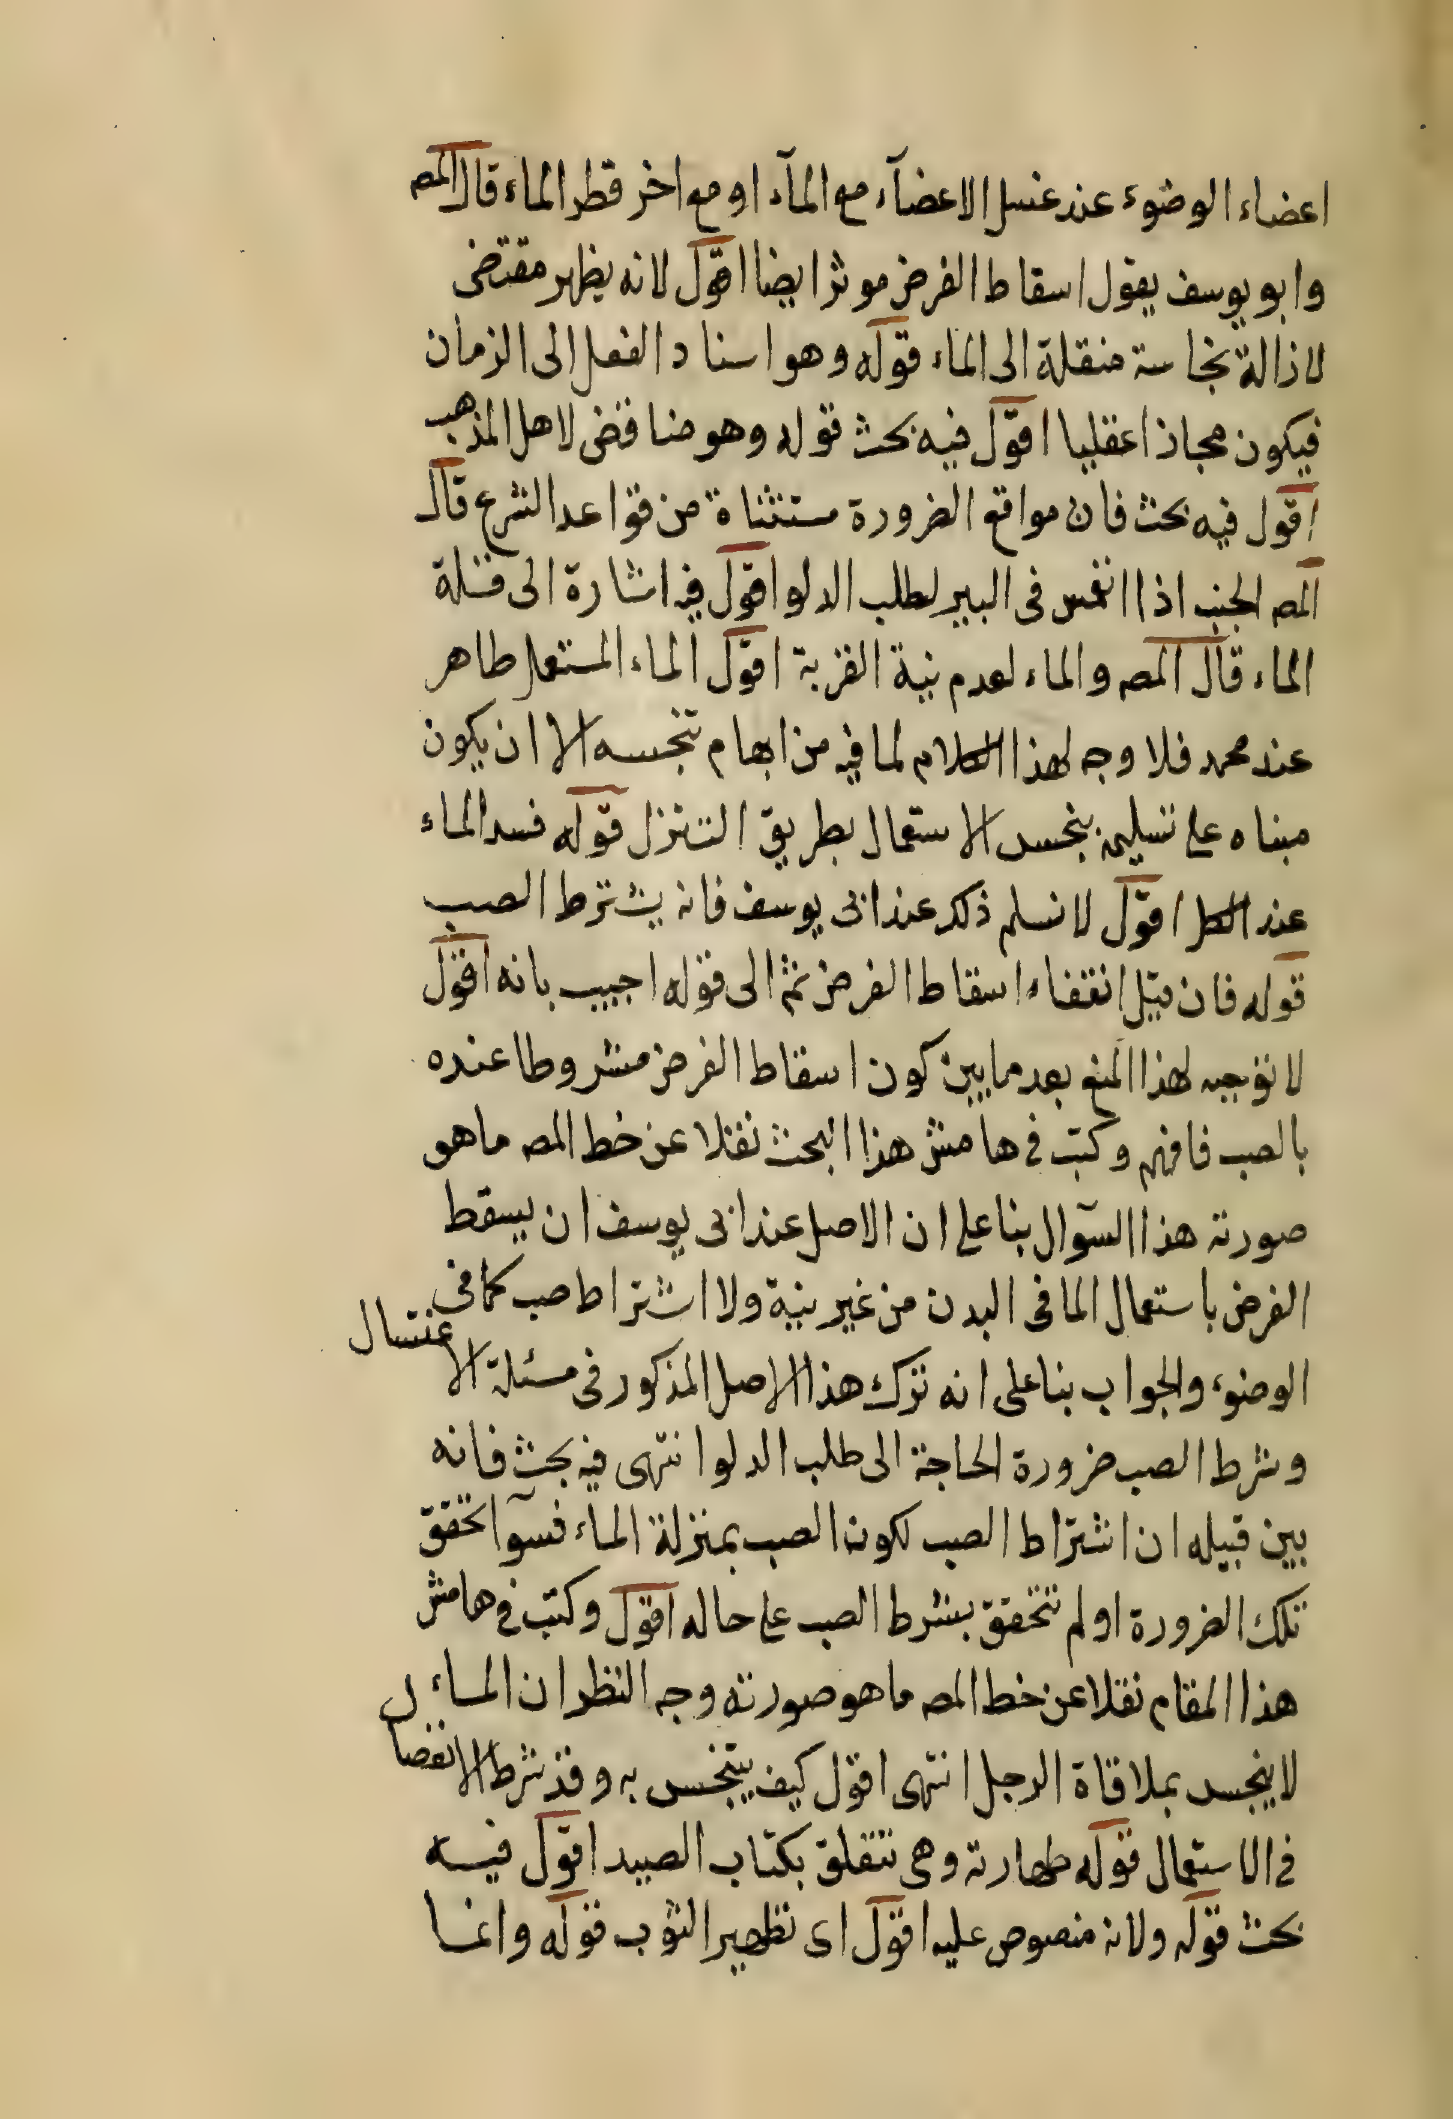 اعضاء الوضوء عند غسل الاعضآء مع المآء او مع اخر قطر الماء قال المص
وابو يوسف يقول اسقاط الفرض موثر ايضا اقول لانه يظهر مقتضى
لازالة نجاسة منقلة الى الماء قوله وهو اسناد الفعل الى الزمان
فيكون مجازا عقليا اقول فيه بحث قوله وهو مناقض لاهل المذهب
اقول فيه بحث فان مواقع الضرورة مستثناة من قواعد الشرع قال
المص الجنب اذا انغمس فى البير لطلب الدلو اقول فيه اشارة الى قتلة
الماء قال المص والماء لعدم نية القربة اقول الماء المستعمل طاهر
عند محمد فلا وجه لهذا الكلام لما فيه من ابهام تنجسه الا ان يكون
مبناه على تسليمه بنجس الاستعمال بطريق التنزل قوله فسد الماء
عند الكل اقول لا نسلم ذلك عند ابى يوسف فانه يشترط الصب
قوله فان قيل انتفاء اسقاط الفرض ثم الى قوله اجيب بانه اقول
لا توجيه لهذا المنع بعد ما يبين كون اسقاط الفرض مشروطا عنده
بالصب فافهم وكتب فى هامش هذا البحث نقلا عن خط المص ما هو
صورته هذا السوال بنا على ان الاصل عند ابى يوسف ان يسقط
الفرض باستعمال الما فى البدن من غير نية ولا اشتراط صب كما فى
الوضوء والجواب بنا على انه ترك هذا الاصل المذكور فى مسئلة الاغتسال
وشرط الصب ضرورة الحاجة الى طلب الدلو انتهى فيه بحث فانه
بين قبيله ان اشتراط الصب لكون الصب بمنزلة الماء فسوآ تحقق
تلك الضرورة او لم تتحقق بشرط الصب على حاله اقول وكتب فى هامش
هذا المقام نقلا عن خط المص ما هو صورته وجه النظر ان الماء
لا ينجس بملاقاة الرجل انتهى اقول كيف يتنجس به وقد شرط الانفصال
فى الاستعمال قوله طهارته وهى تتعلق بكتاب الصيد اقول فيه
بحث قوله ولانه منصوص عليه اقول اى تطهير الثوب قوله وانما